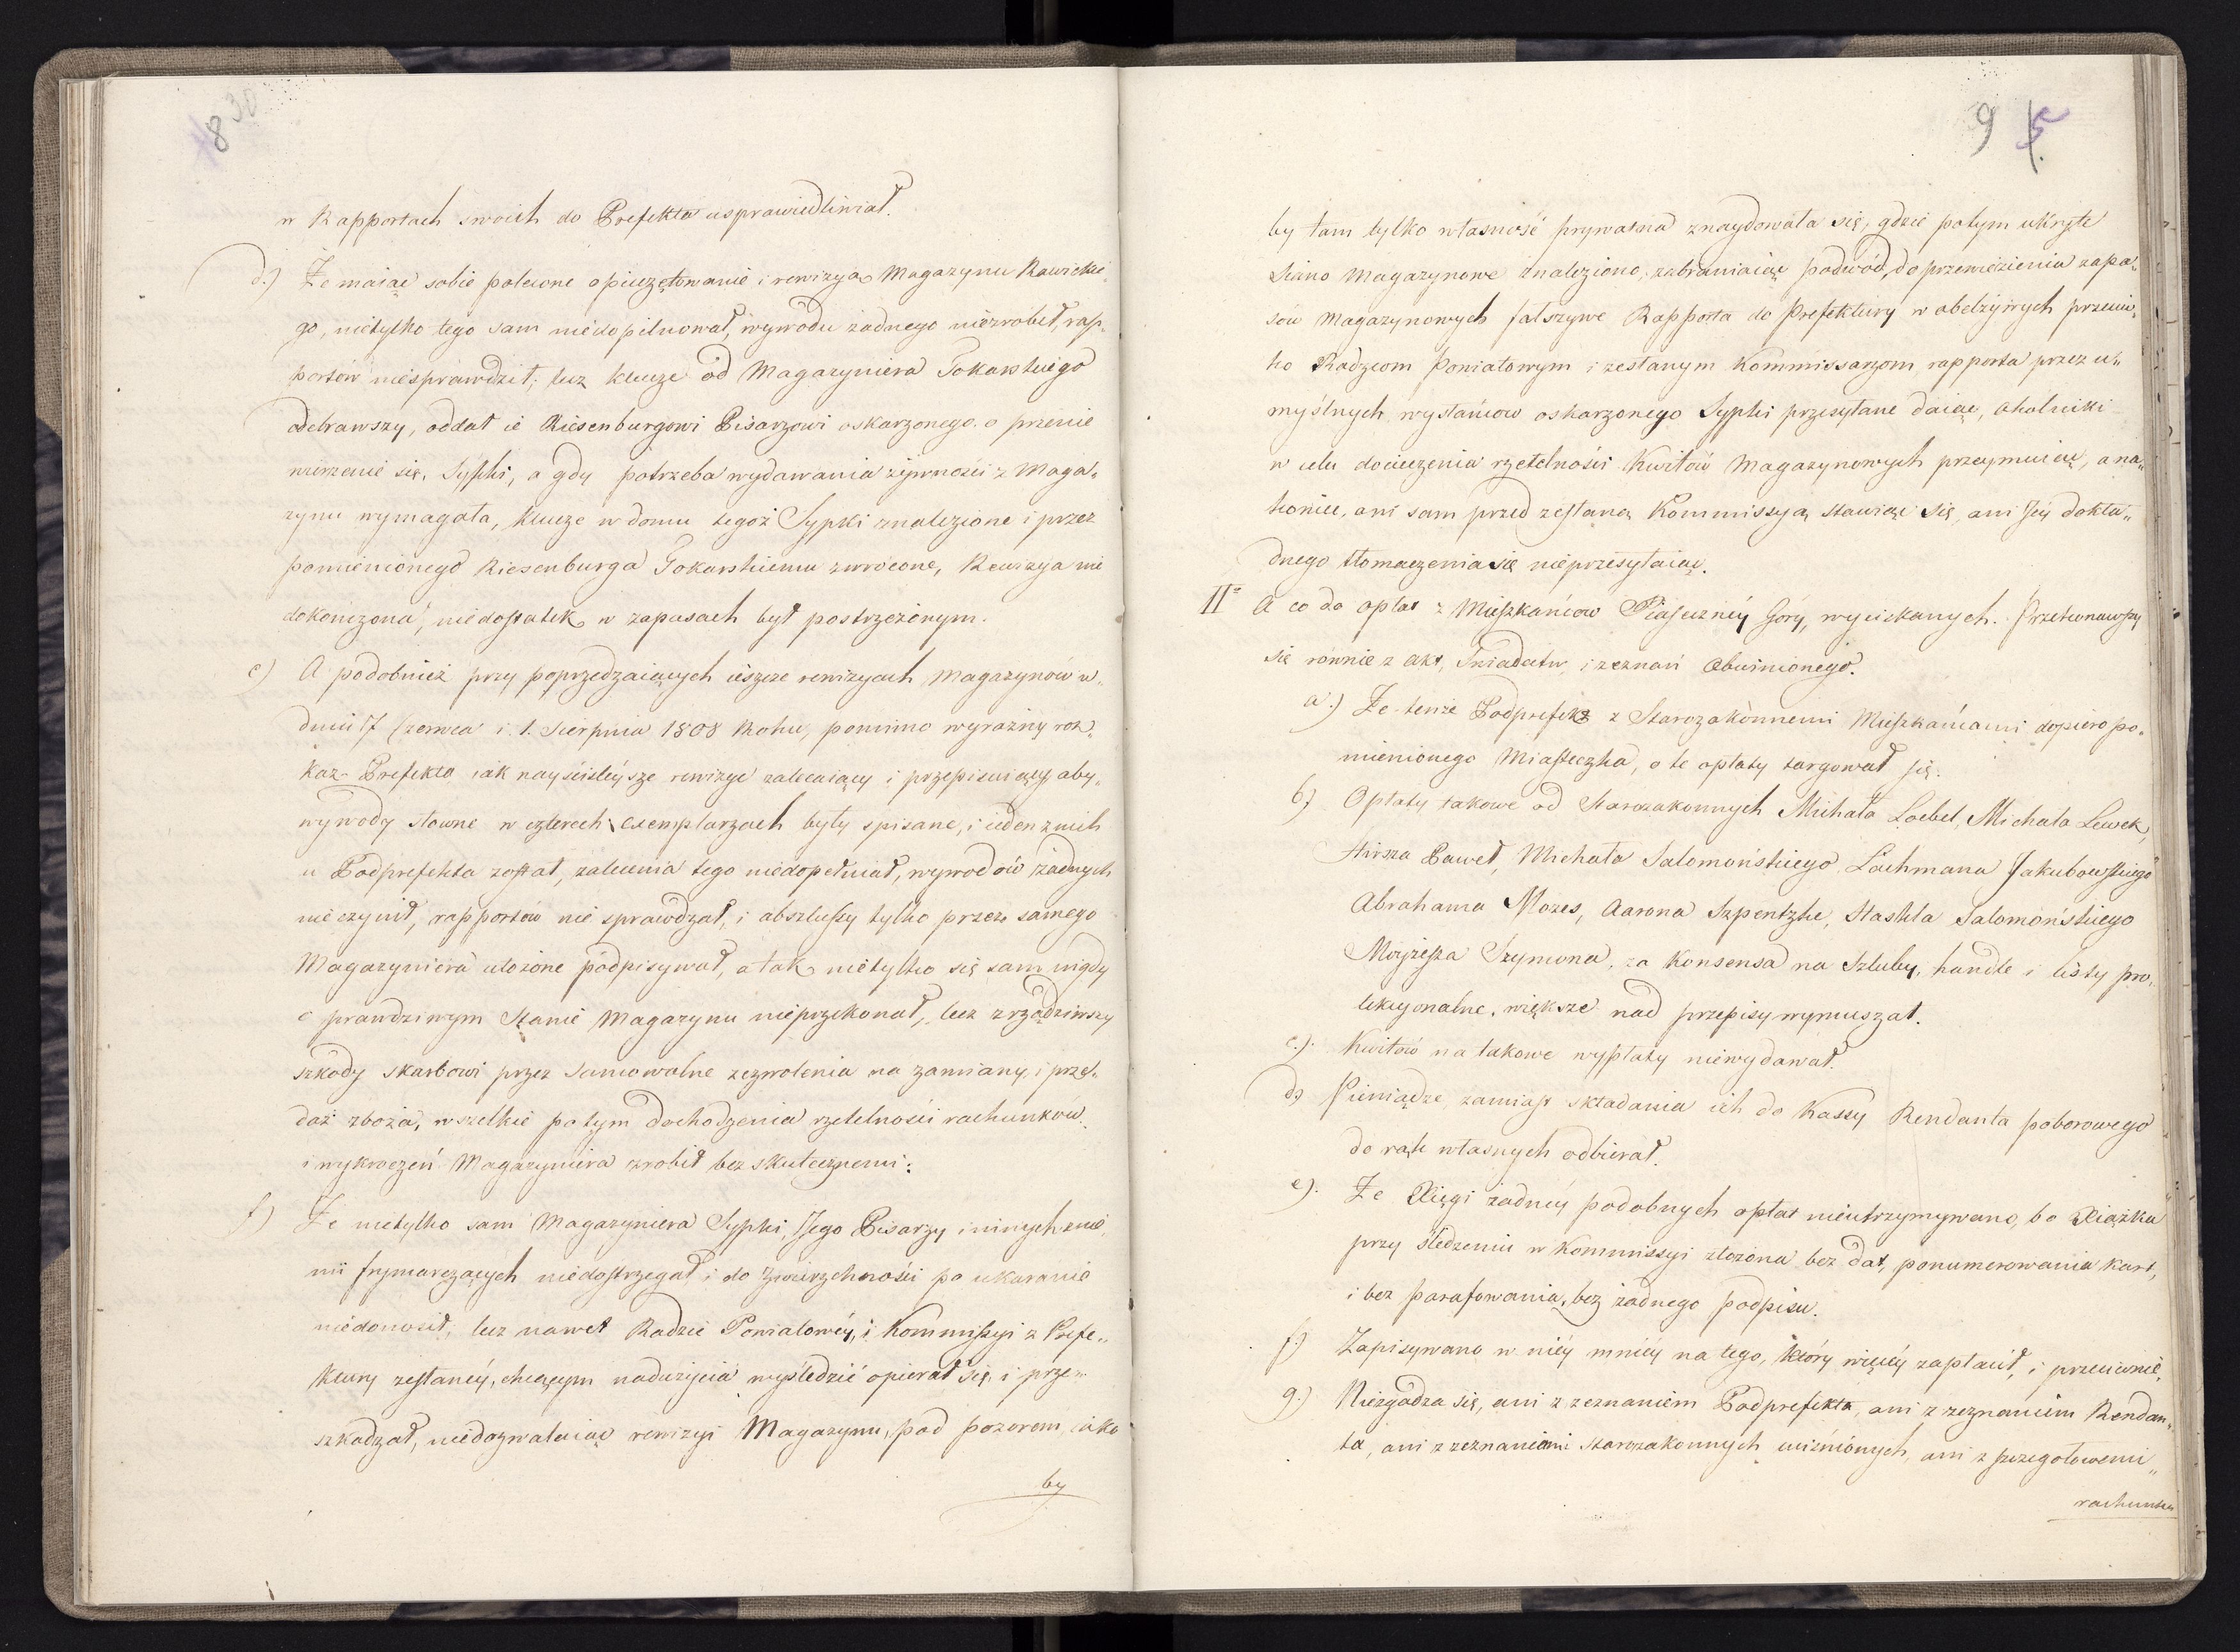 8 30
w Rapportach swoich do Prefekta usprawiedliwiał.
d.) Że maiąc sobie polecone opieczętowanie i rewizyą Magazynu Rawickie„
go, nietylko tego sam niedopilnował, wywodu żadnego niezrobił, rap„
portów niesprawdził; lecz klucze od Magazyniera Tokarskiego
odebrawszy, oddał ie Riesenburgowi Pisarzowi oskarzonego o przenie
wierzenie się, Sypki, a gdy potrzeba wydawania żywności z Maga„
zynu wymagała, klucze w domu tegoż Sypki znalezione i przez
pomienionego Riesenburga Tokarskiemu zwrócone, Rewizya nie
dokończona, niedostatek w zapasach był postrzeżonym.
e) A podobnież przy poprzedzaiących ieszcze rewizyach Magazynów w„
dniu 17 Czerwca i 1. Sierpnia 1808 Roku, pomimo wyraźny roz„
kaz Prefekta iak nayściśleysze rewizye zalecaiący i przepisuiący aby„
wywody słowne w czterech exemplarzach były spisane, i ieden z nich
u Podprefekta został, zalecenia tego niedopełniał, wywodów żadnych
nie czynił, rapportów nie sprawdzał, i abszlussy tylko przez samego
Magazyniera ułożone podpisywał, a tak nietylko się sam nigdy
o prawdziwym Stanie Magazynu nieprzekonał, lecz zrządziwszy
szkody skarbowi przez samowolne zezwolenia na zamiany i przed„
daż zboża, wszelkie potym dochodzenia rzetelności rachunków
i wykroczeń Magazyniera zrobił bezskutecznemi.
f) Że nietylko sam Magazyniera Sypki, Jego Pisarzy i innych z nie„
mi frymarczących niedostrzegał i do Zwierzchności po ukaranie
niedonosił, lecz nawet Radzie Powiatowéy, i Kommissyi z Prefe„
ktury zesłanéy, chcącym nadużycia wyśledzić opierał się, i prze„
szkadzał, niedozwalaiąc rewizyi Magazynu, pod pozorem iako
by
9 5.
by tam tylko własność prywatna znaydowała się, gdzie potym ukryte
Siano Magazynowe znaleziono, zabraniaiąc podwód, do przewiezienia zapa„
sów Magazynowych fałszywe Rapporta do Prefektury w obelżywych przeciw„
ko Radzcom Powiatowym i zesłanym Kommissarzom, rapporta przez u„
myślnych wysłańców oskarzonego Sypki przesyłane daiąc, okolniki
w celu docieczenia rzetelności Kwitów Magazynowych przeymuiąc, a na„
koniec, ani sam przed zesłaną Kommissyą stawiąc się, ani Jéy dokła„
dnego tłomaczenia się nieprzesyłaiąc.
II° A co do opłat z Mieszkańców Piaseczney Góry, wyciskanych. Przekonawszy
się równie z akt, Świadectw i zeznań Obwinionego.
a.) Że tenże Podprefekt z Starozakonnemi Mieszkańcami dopiero po„
mienionego Miasteczka, o te opłaty targował się.
b) Opłaty takowe od Starozakonnych Michała Loebel, Michała Lewek,
Hirsza Paweł, Michała Salomońskiego, Lachmana Jakubowskiego
Abrahama Mozes, Aarona Szpentzke, Haskla Salomońskiego
Moyżesza Szymona, za Konsensa na Szluby, handle i listy pro„
tekcyonalne, większe nad przepisy wymuszał.
c.) Kwitów na takowe wypłaty niewydawał.
d) Pieniądze zamiast składania ich do Kassy Rendanta poborowego
do rąk własnych odbierał.
e). Że Xięgi żadnéy podobnych opłat nieutrzymywano, bo Xiążka
przy śledzeniu w Kommissyi złożona bez dat, ponumerowania kart,
i bez parafowania, bez żadnego podpisu.
f.) Zapisywano w niéy mniéy na tego, który więcéy zapłacił, i przeciwnie,
g.) Niezgadza się, ani z zeznaniem Podprefekta, ani z zeznaniem Rendan„
ta, ani z zeznaniami starozakonnych uciśnionych, ani z szczegółowemi„
rachunka